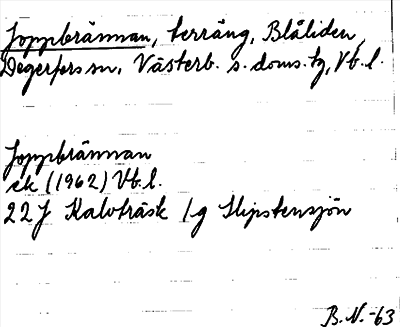 Joppbrännan, terräng, Blåliden,
Degerfors sn, Västerb. s. doms. tg, Vb. l.
Joppbrännan
ek (1962) Vb. l.
22 J Kalvträsk 1g Slipstensjön
B. N. -63